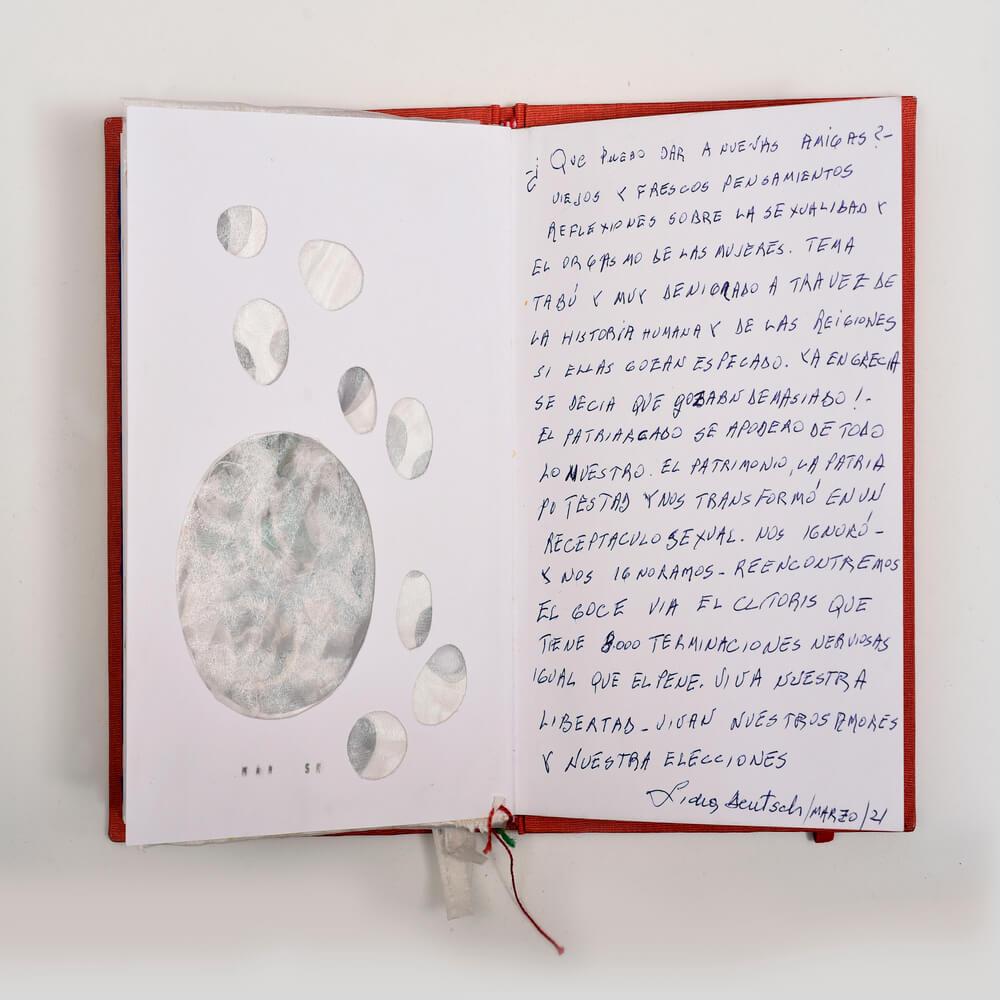 MAR SK
¿¡ QUE PUEDO DAR A NUEVAS AMIGAS?-
VIEJOS Y FRESCOS PENSAMIENTOS
REFLEXIONES SOBRE LA SEXUALIDAD Y
EL ORGASMO DE LAS MUJERES. TEMA
TABÚ Y MUY DENIGRADO A TRAVEZ DE
LA HISTORIA HUMANA Y DE LAS REIGIONES
SI ELLAS GOZAN ES PECADO. YA EN GRECIA
SE DECIA QUE GOZABN DEMASIADO!-
EL PATRIARCADO SE APODERO DE TODO
LO NUESTRO. EL PATRIMONIO, LA PATRIA
POTESTAD Y NOS TRANSFORMÓ EN UN
RECEPTACULO SEXUAL. NOS IGNORÓ-
Y NOS IGNORAMOS- REENCONTREMOS
EL GOCE VIA EL CLITORIS QUE
TIENE 8.000 TERMINACIONES NERVIOSAS
IGUAL QUE EL PENE. VIVA NUESTRA
LIBERTAD- VIVAN NUESTROS AMORES
Y NUESTRA ELECCIONES
Lidia Deutsch/MARZO/21